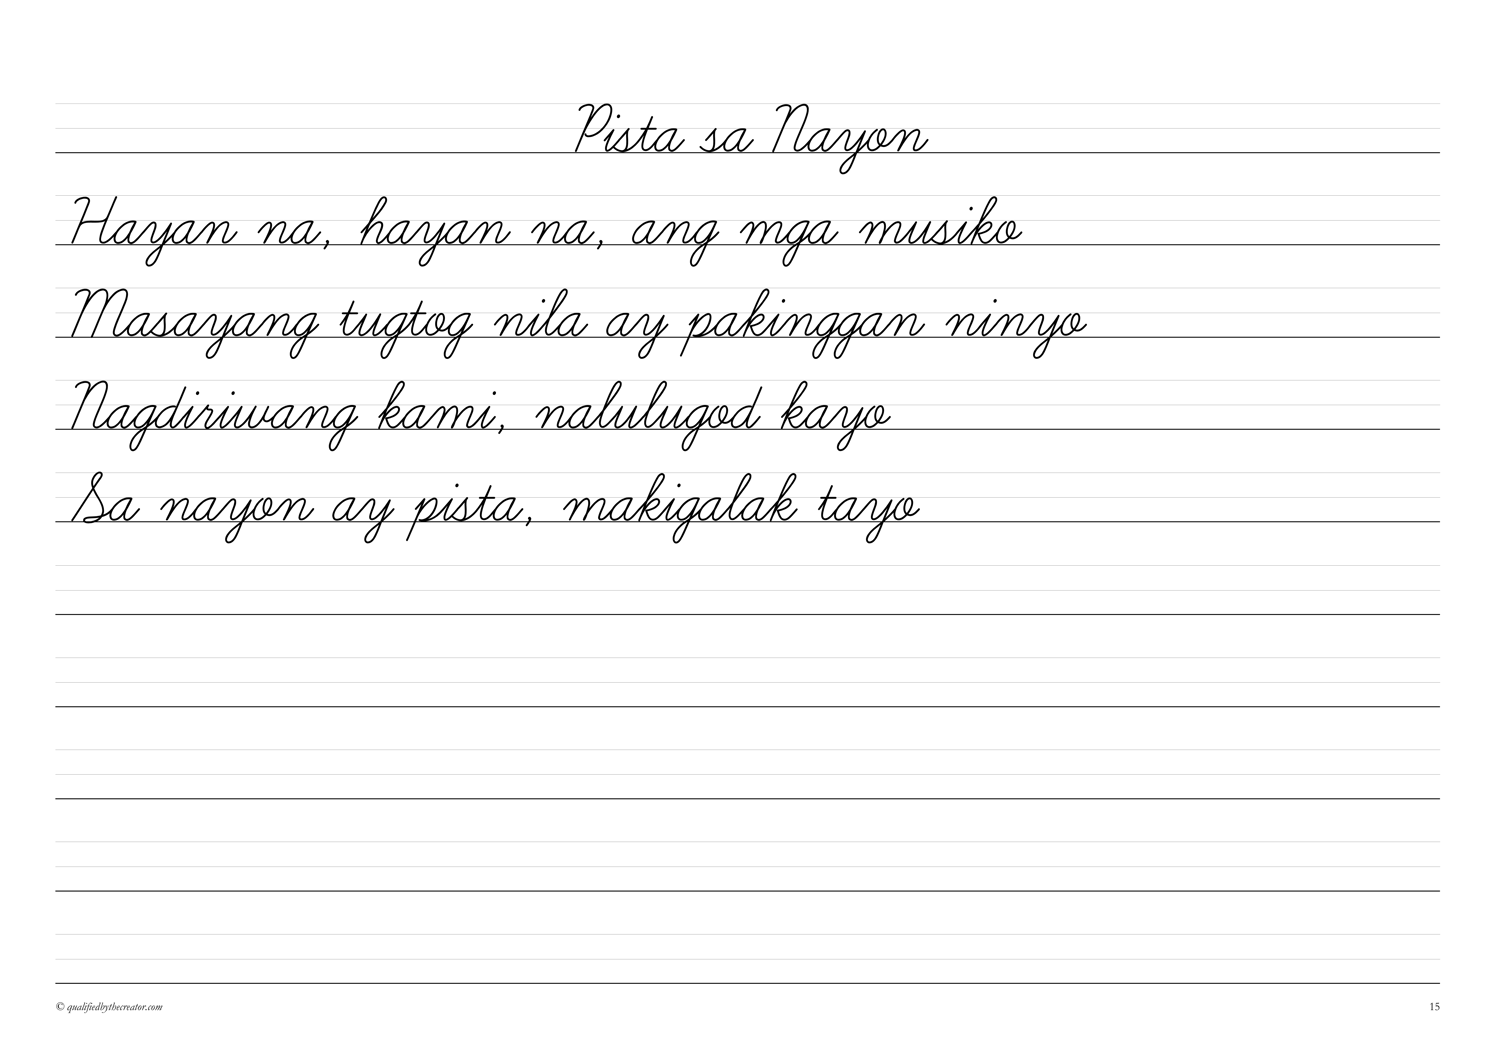 Pista sa Nayon
Hayan na, hayan na, ang mga musiko
Masayang tugtog nila ay pakinggan ninyo
Nagdiriwang kami, nalulugod kayo
Sa nayon ay pista, makigalak tayo
© qualifiedbythecreator.com 15